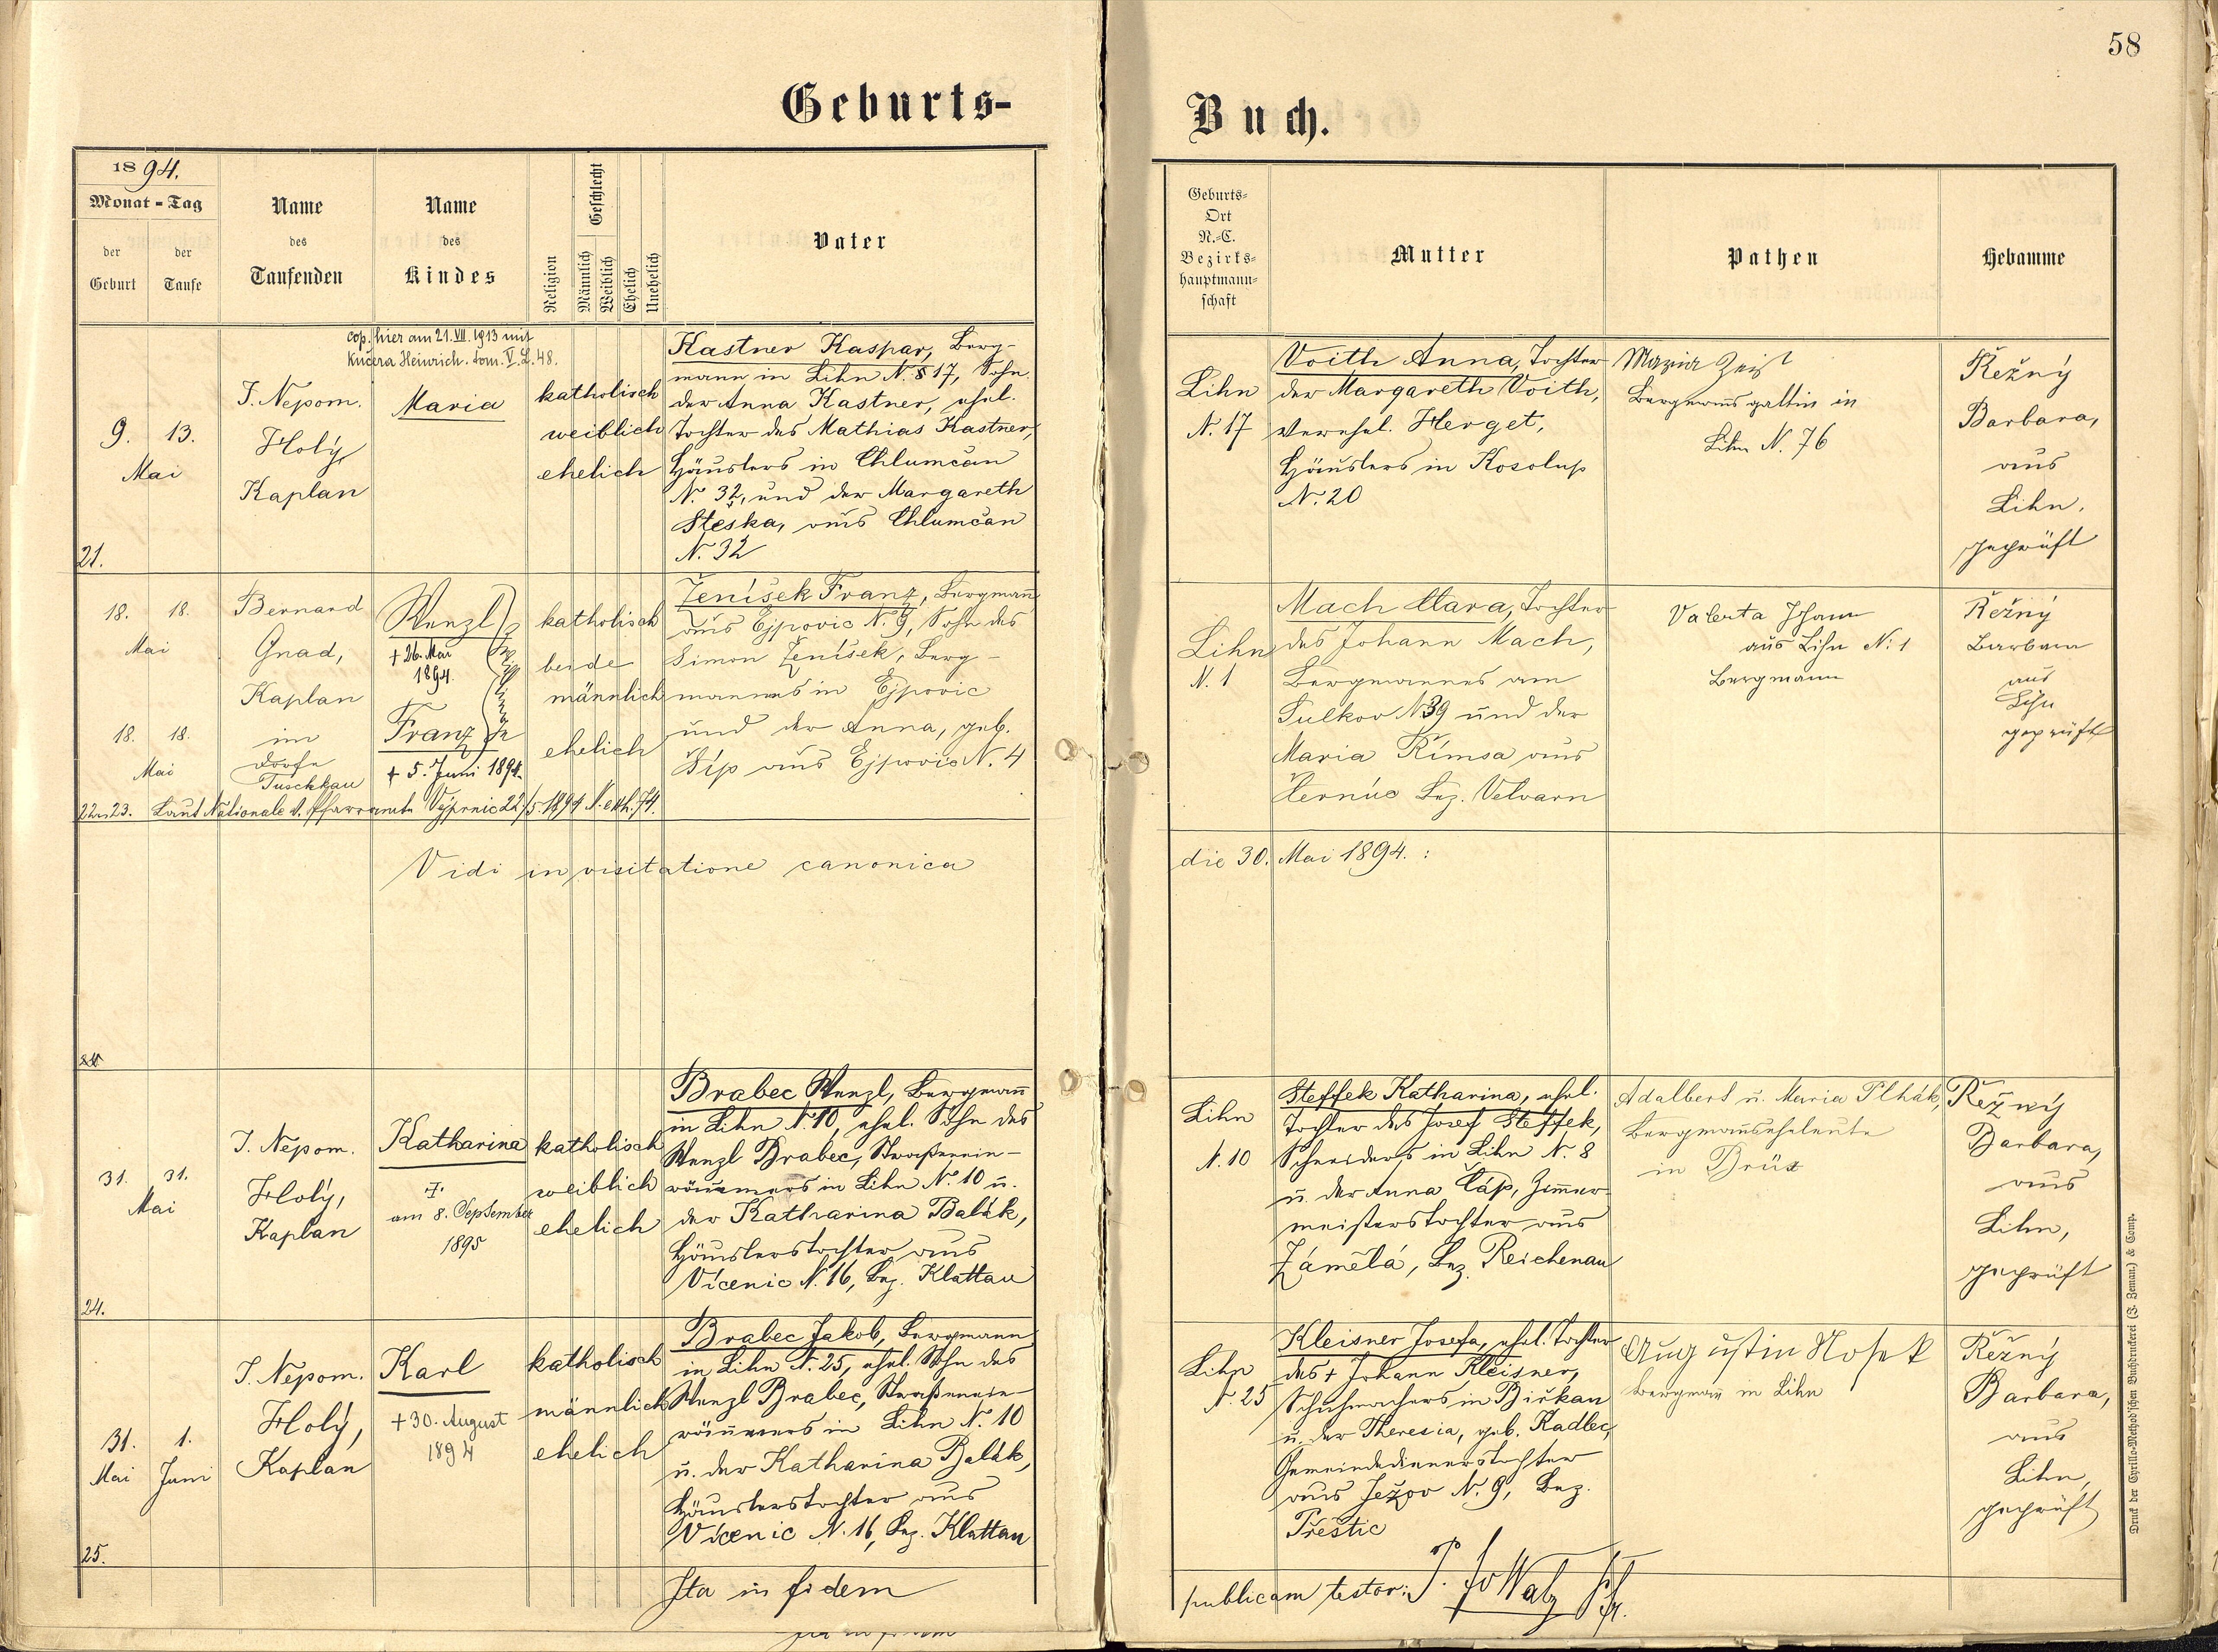 58
Geburts-
Buch.
1894.
Monat - Tag
der Geburt
der Taufe
Name
des
Taufenden
Name
des
Kindes
Religion
Geschlecht
Männlich
Weiblich
Ehelich
Unehelich
Vater
Geburts-
Ort
N.-C.
Bezirks-
hauptmann-
schaft
Mutter
Pathen
Hebamme
cop. hier am 21. VII. 1913 mit
Kučera Heinrich. tom. V. L. 48.
9. 13.
Mai
J. Nepom.
Holý,
Kaplan
Maria
katholisch
weiblich
ehelich
Kastner Kaspar, Berg-
mann in Lihn N. 17, Sohn
der Anna Kastner, ehel.
Tochter des Mathias Kastner,
Häuslers in Chlumčan
N. 32, und der Margareth
Steška, aus Chlumčan
N. 32
21.
Lihn
N. 17
Voith Anna, Tochter
der Margareth Voith,
verehel. Herget,
Häuslers in Kosolup
N. 20
Maria Zeist
Bergmanns gattin in
Lihn N. 76
Řežný
Barbara,
aus
Lihn,
geprüft
18. 18.
Mai
18. 18.
Mai
Bernard
Gnad,
Kaplan
im
Dorfe
Tuschkau
Wenzl
+ 26. Mai
1894
Franz
+ 5. Juni 1894.
Zwillinge
katholisch
beide
männlich
ehelich
Ženíšek Franz, Bergmann
aus Ejpovic N. 9, Sohn des
Simon Ženíšek, Berg-
mannes in Ejpovic
und der Anna, geb.
Šíp aus Ejpovic N. 4
22 u 23. Laut Nationale d. Pfarramte Vejprnic 22/5 1894 N. exh. 74.
Lihn
N. 1
Mach Clara, Tochter
des Johann Mach,
Bergmannes am
Sulkov N 39 und der
Maria Římsa aus
Černúc Bez. Velvarn
Valenta Johann
aus Lihn N: 1
Bergmann
Řežný
Barbara
aus
Lihn
geprüft
Vidi in visitatione canonica
die 30. Mai 1894. :
31. 31.
Mai
J. Nepom.
Holý,
Kaplan
Katharina
†.
am 8. September
1895
katholisch
weiblich
ehelich
Brabec Wenzl, Bergmann
in Lihn N. 10, ehel. Sohn des
Wenzl Brabec, Straßenein-
räumers in Lihn N. 10 u.
der Katharina Balák,
Häuslerstochter aus
Vícenic N. 16, Bez. Klattau
24.
Lihn
N. 10
Steffek Katharina, ehel.
Tochter des Josef Steffek,
Schneiders in Lihn N. 8
u. der Anna Čáp, Zimmer-
meisterstochter aus
Zámělá, Bez. Reichenau
Adalbert u. Maria Plhák,
Bergmannseheleute
in Brüx
Řežný
Barbara,
aus
Lihn,
geprüft
31. 1.
Mai Juni
J. Nepom.
Holý,
Kaplan
Karl
+ 30. August
1894
katholisch
männlich
ehelich
Brabec Jakob, Bergmann
in Lihn N. 25, ehel. Sohn des
Wenzl Brabec, Straßenein-
räumers in Lihn N. 10
u. der Katharina Balák,
Häuslerstochter aus
Vícenic N. 16, Bez. Klattau
25.
Lihn
N. 25
Kleisner Josefa, ehel. Tochter
des + Johann Kleisner,
Schuhmachers in Birkan
u. der Theresia, geb. Kadlec,
Gemeindedienerstochter
aus Ježov N. 9, Bez.
Přeštic
Augustin Nosek
Bergmann in Lihn
Řežný
Barbara,
aus
Lihn,
geprüft
Ita in fidem
publicam testor:
Druck der Cyrillo-Method'schen Buchdruckerei (J. Zeman) & Comp.